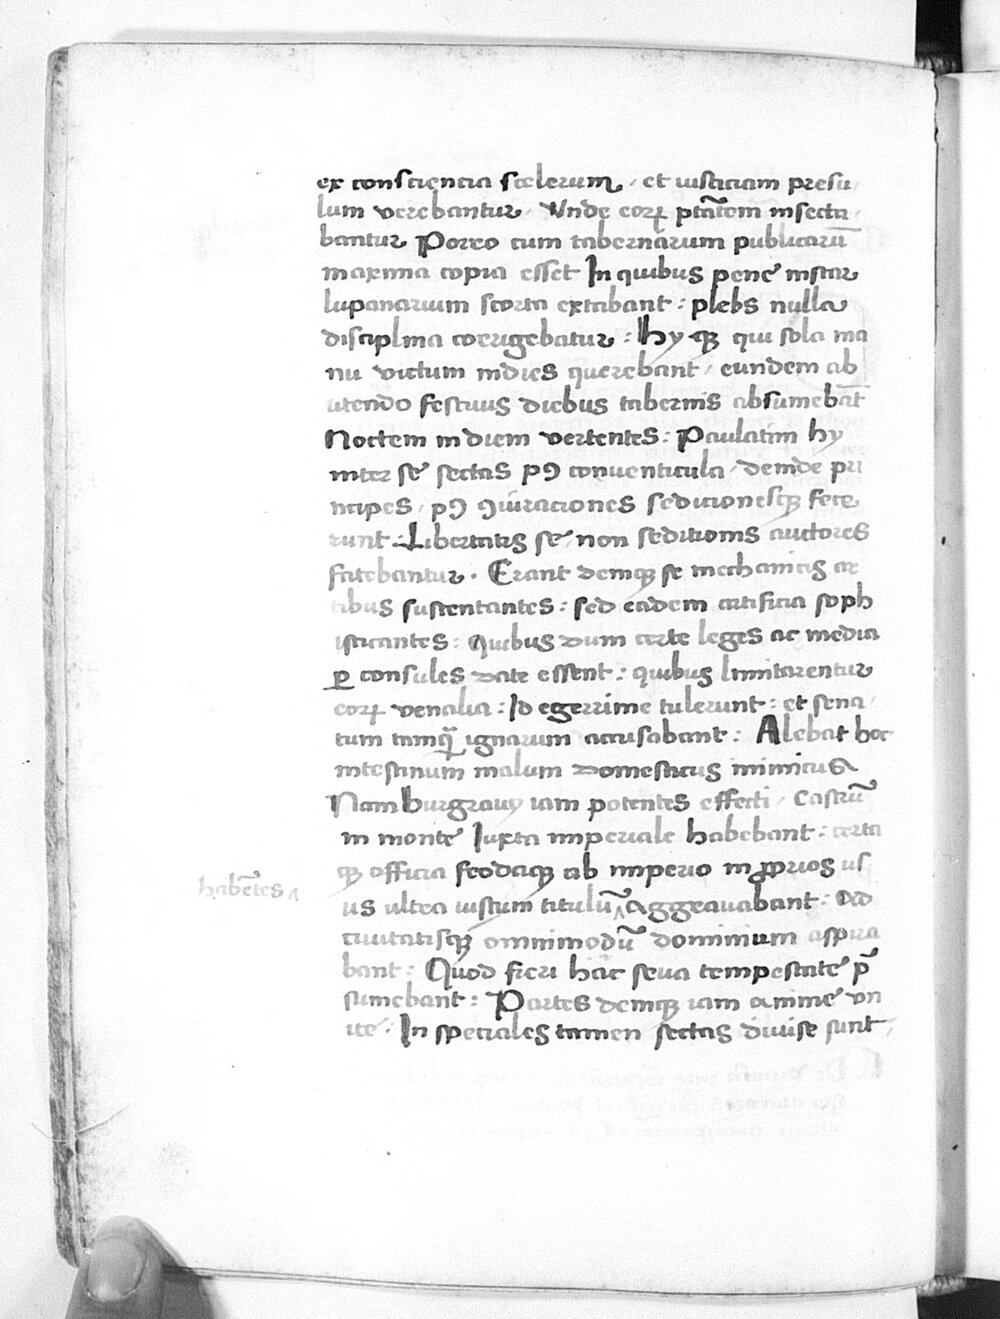 ex consciencia scelerum / et iusticiam presu
lum verebantur / Vnde eoꝝ ptãtem insecta
bantur Porro cum tabernarum publicarũ
maxima copia esset In quibus pene instar
lupanarium scorta extabant : plebs nulla
disciplina corrigebatur : Hy qꝫ qui sola ma
nu victum indies querebant / eundem ab
utendo festiuis diebus tabernis absumebãt
Noctem in diem vertentes : Paulatim hy
inter se sectas pꝯ conuenticula / deinde pri
ncipes / pꝯ ꝯiuraciones sedicionesqꝫ fece
runt . Libertatis se / non seditionis auctores
fatebantur . Erant deniqꝫ se mechanicis ar
tibus sustentantes : sed eadem artificia soph
isticantes : Quibus dum certe leges ac media
ꝑ consules date essent : quibus limitarentur
eoꝝ venalia : Id egerrime tulerunt : et sena
tum tamq̃ ignarum accusabant : Alebat hoc
intestinum malum domesticus inimicus
Nam Burgrauy iam potentes effecti / Castrũ
in monte Iuxta imperiale habebant : certa
qꝫ officia feodaqꝫ ab imperio in ꝓprios us
us ultra iustum titulũ ^ aggrauabant : Ad
habẽtes ^
ciuitatisqꝫ omnimodũ dominium aspira
bant : Quod fieri hac seua tempestate p̃
sumebant : Partes deniqꝫ iam anime vn
ite . In speciales tamen sectas diuise sunt /